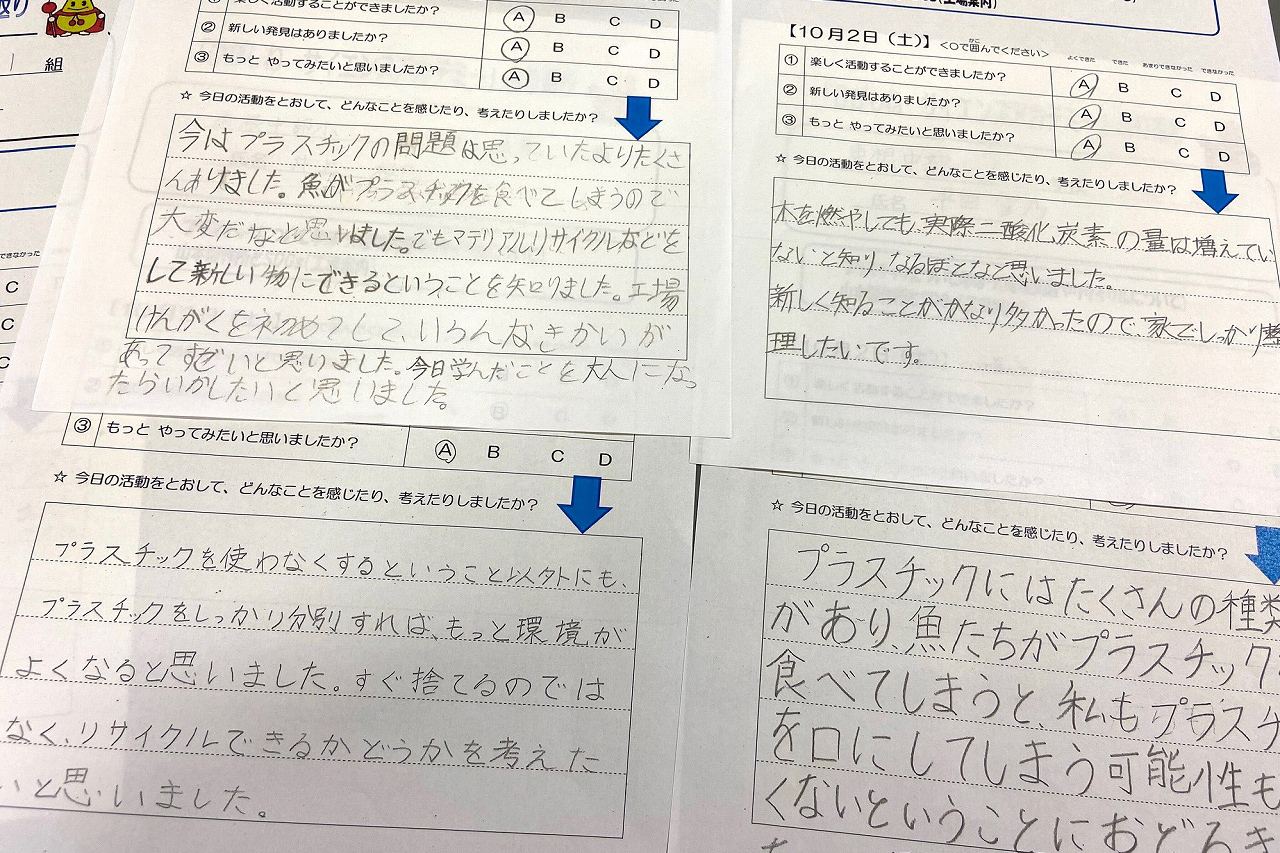 組
① 楽しく活動することができましたか? A B C D
② 新しい発見はありましたか? A B C D
③ もっと やってみたいと思いましたか? A B C D
☆ 今日の活動をとおして、どんなことを感じたり、考えたりしましたか?
今はプラスチックの問題は思っていたよりたくさ
んありました。魚がプラスチックを食べてしまうので
大変だなと思いました。でもマテリアルリサイクルなどを
して新しい物にできるということを知りました。工場
けんがくを初めてして、いろんなきかいが
あってすごいと思いました。今日学んだことを大人になっ
たらいかしたいと思いました。
【10月2日(土)】 <○で囲んでください> よくできた できた あまりできなかった できなかった
① 楽しく活動することができましたか? A B C D
② 新しい発見はありましたか? A B C D
③ もっと やってみたいと思いましたか? A B C D
☆ 今日の活動をとおして、どんなことを感じたり、考えたりしましたか?
木を燃やしても、実際二酸化炭素の量は増えてい
ないと知り、なるほどなと思いました。
新しく知ることがかなり多かったので、家でしっかり整
理したいです。
できなかった
C
C
C
③ もっと やってみたいと思いましたか? A B C D
☆ 今日の活動をとおして、どんなことを感じたり、考えたりしましたか?
プラスチックを使わなくするということ以外にも、
プラスチックをしっかり分別すれば、もっと環境が
よくなると思いました。すぐ捨てるのでは
なく、リサイクルできるかどうかを考えた
いと思いました。
☆ 今日の活動をとおして、どんなことを感じたり、考えたりしましたか?
プラスチックにはたくさんの種類
があり、魚たちがプラスチック
食べてしまうと、私もプラスチ
を口にしてしまう可能性も
くないということにおどろき